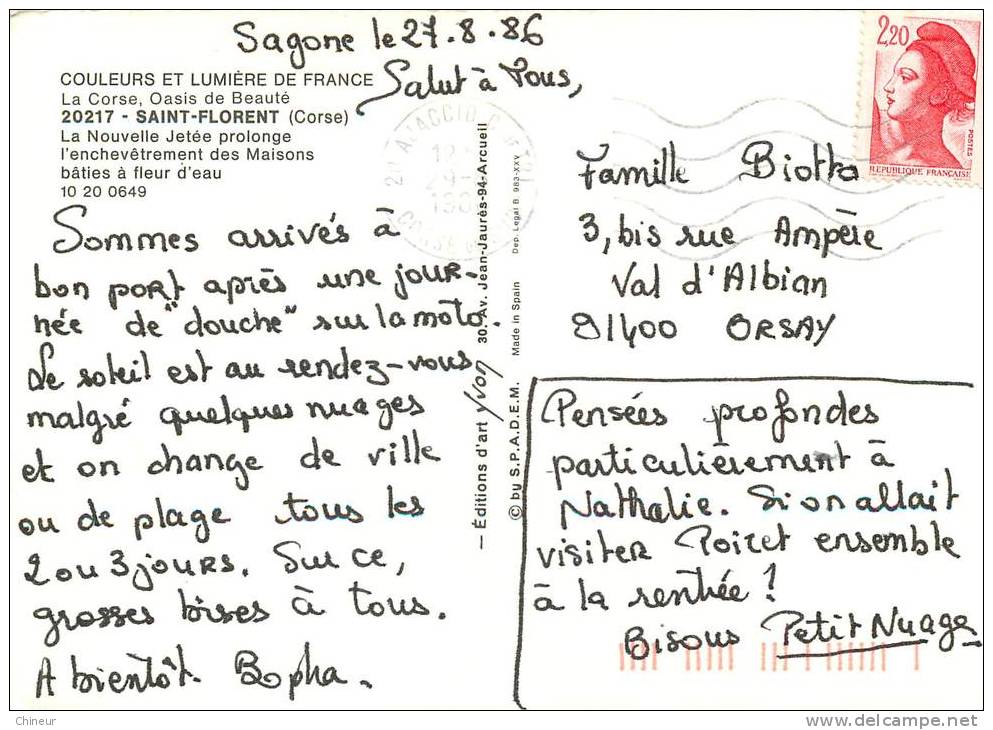 Sagone le 27.8.86
Salut à Tous,
COULEURS ET LUMIÈRE DE FRANCE
La Corse, Oasis de Beauté
20217 - SAINT-FLORENT (Corse)
La Nouvelle Jetée prolonge
l'enchevêtrement des Maisons
bâties à fleur d'eau
10 20 0649
Sommes arrivés à
bon port après une jour-
née de "douche" sur la moto.
Le soleil est au rendez-vous
malgré quelques nuages
et on change de ville
ou de plage tous les
2 ou 3 jours. Sur ce,
grosses bises à tous.
A bientôt. Bopha.
— Éditions d'art Yvon 30. Av. Jean-Jaurès-94-Arcueil
© by S.P.A.D.E.M. Made in Spain Dep. Legal B. 983-XXV
AJACCIO
2,20
POSTES
RÉPUBLIQUE FRANÇAISE
Famille Biotta
3, bis rue Ampère
Val d'Albian
91400 ORSAY
Pensées profondes
particulièrement à
Nathalie. Si on allait
visiter Poiret ensemble
à la rentrée !
Bisous Petit Nuage
Chineur
delcampe.net